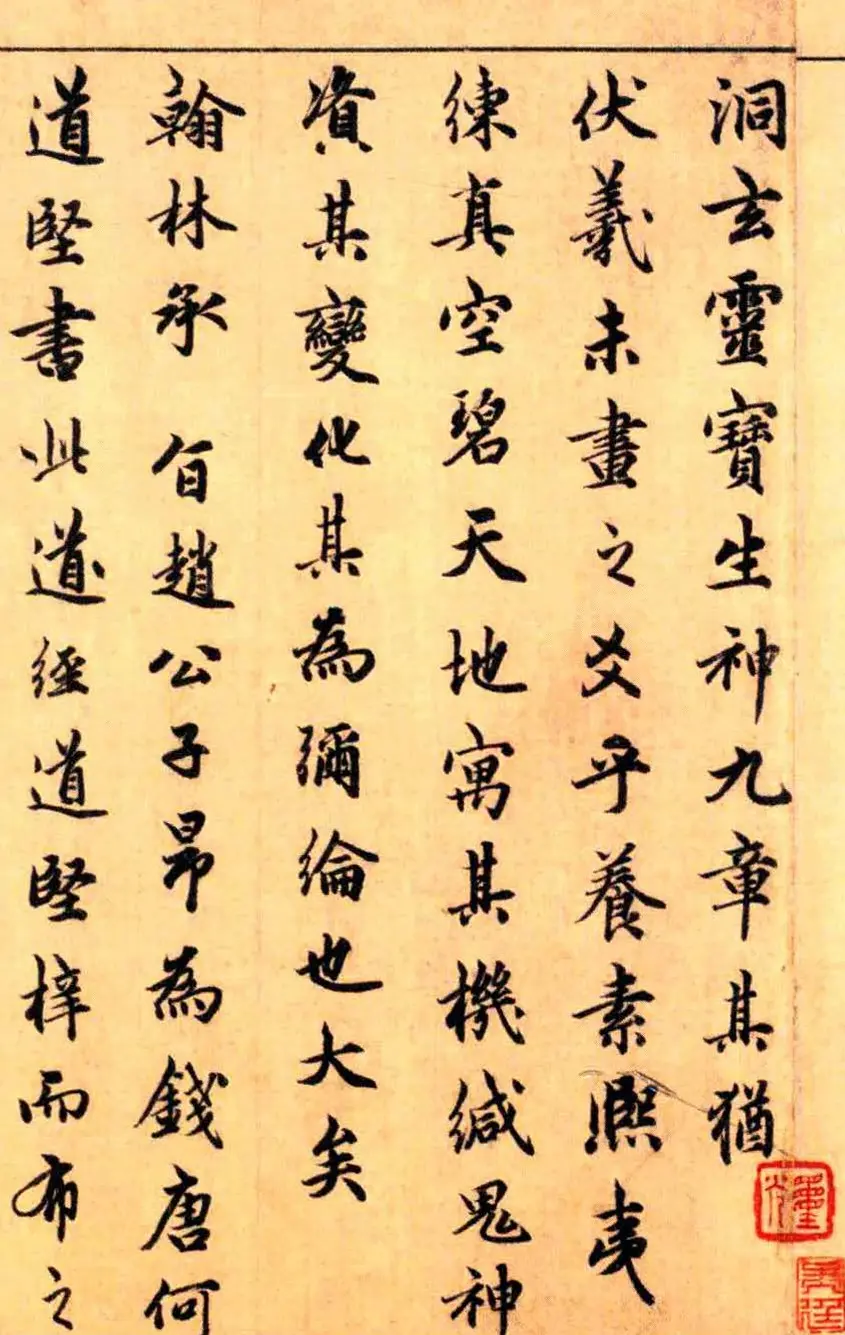 洞玄靈寶生神九章其猶
伏羲未畫之爻乎養素熙夷
練真空碧天地寓其機緘鬼神
資其變化其為彌綸也大矣
翰林承 旨趙公子昂為錢唐何
道堅書此道經道堅梓而布之